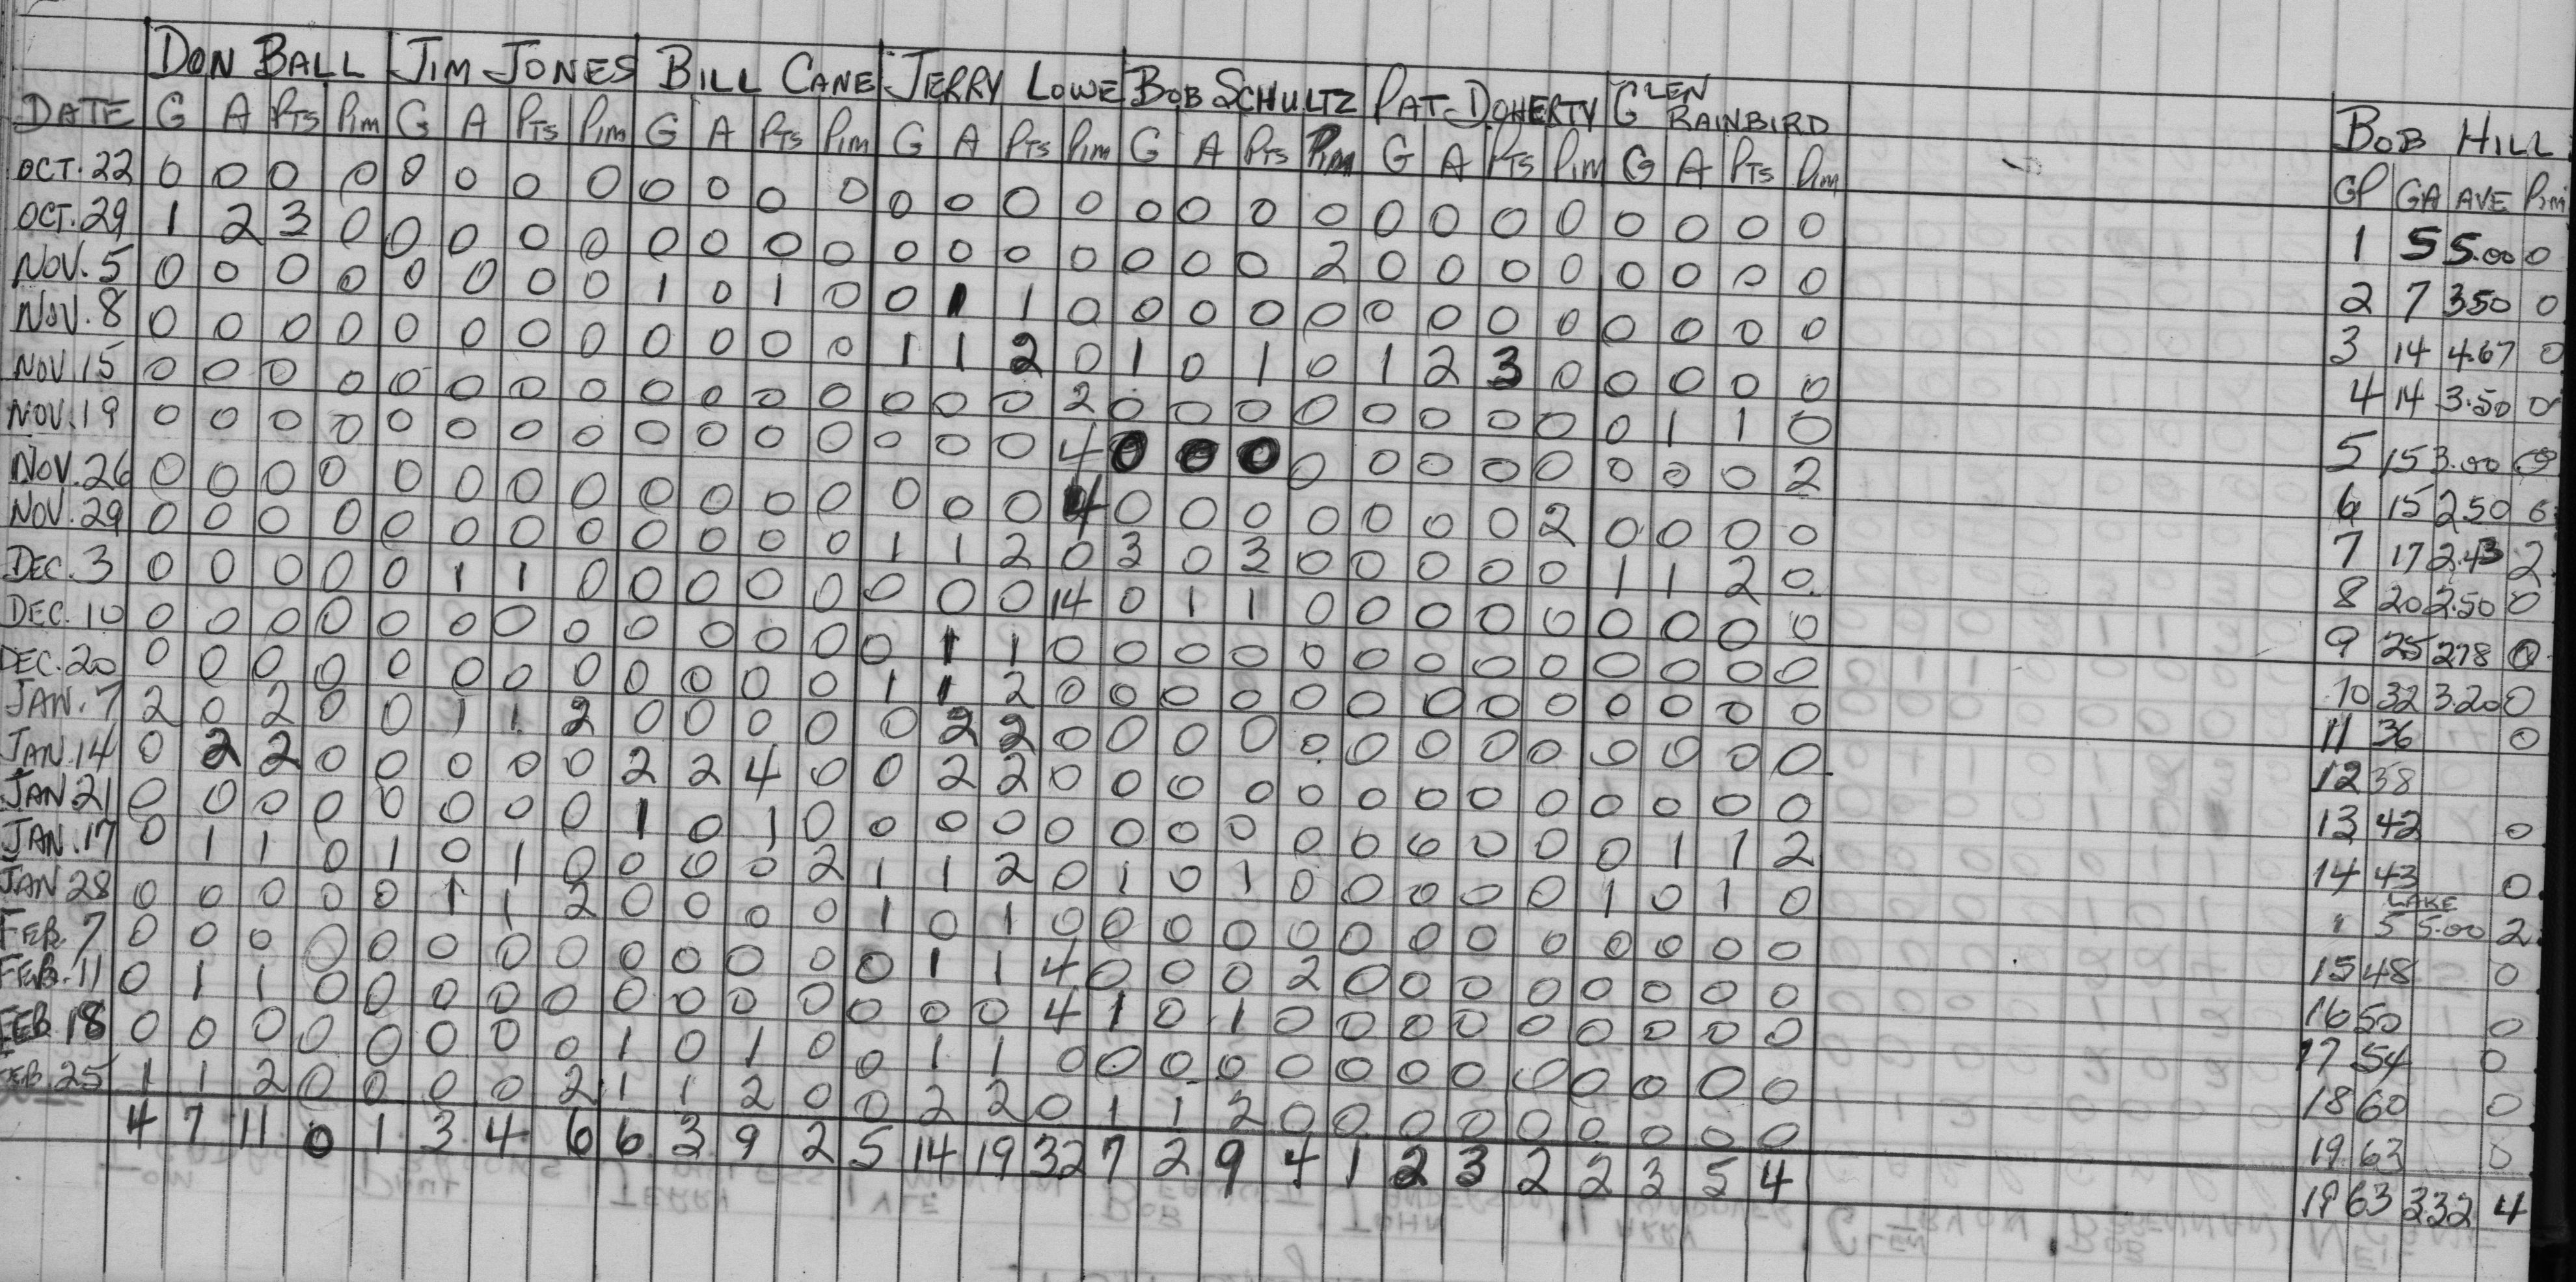 DON BALL JIM JONES BILL CANE JERRY LOWE BOB SCHULTZ PAT DOHERTY GLEN RAINBIRD BOB HILL
DATE G A PTS PIM G A PTS PIM G A PTS PIM G A PTS PIM G A PTS PIM G A PTS PIM G A PTS PIM GP GA AVE PIM
OCT. 22 0 0 0 0 0 0 0 0 0 0 0 0 0 0 0 0 0 0 0 0 0 0 0 0 0 0 0 0 1 5 5.00 0
OCT. 29 1 2 3 0 0 0 0 0 0 0 0 0 0 0 0 0 0 0 0 2 0 0 0 0 0 0 0 0 2 7 3.50 0
NOV. 5 0 0 0 0 0 0 0 0 1 0 1 0 0 1 1 0 0 0 0 0 0 0 0 0 0 0 0 0 3 14 4.67 0
NOV. 8 0 0 0 0 0 0 0 0 0 0 0 0 1 1 2 0 1 0 1 0 1 2 3 0 0 0 0 0 4 14 3.50 0
NOV. 15 0 0 0 0 0 0 0 0 0 0 0 0 0 0 0 2 0 0 0 0 0 0 0 0 0 1 1 0 5 15 3.00 0
NOV. 19 0 0 0 0 0 0 0 0 0 0 0 0 0 0 0 4 0 0 0 0 0 0 0 0 0 0 0 2 6 15 2.50 0
NOV. 26 0 0 0 0 0 0 0 0 0 0 0 0 0 0 0 4 0 0 0 0 0 0 0 2 0 0 0 0 7 17 2.43 2
NOV. 29 0 0 0 0 0 0 0 0 0 0 0 0 1 1 2 0 3 0 3 0 0 0 0 0 1 1 2 0 8 20 2.50 0
DEC. 3 0 0 0 0 0 1 1 0 0 0 0 0 0 0 0 14 0 1 1 0 0 0 0 0 0 0 0 0 9 25 2.78 0
DEC. 10 0 0 0 0 0 0 0 0 0 0 0 0 0 1 1 0 0 0 0 0 0 0 0 0 0 0 0 0 10 32 3.20 0
DEC. 20 0 0 0 0 0 0 0 0 0 0 0 0 1 1 2 0 0 0 0 0 0 0 0 0 0 0 0 0 11 36 0
JAN. 7 2 0 2 0 0 1 1 2 0 0 0 0 0 2 2 0 0 0 0 0 0 0 0 0 0 0 0 0 12 38
JAN. 14 0 2 2 0 0 0 0 0 2 2 4 0 0 2 2 0 0 0 0 0 0 0 0 0 0 0 0 0 13 42 0
JAN 21 0 0 0 0 0 0 0 0 1 0 1 0 0 0 0 0 0 0 0 0 0 0 0 0 0 1 1 2 14 43 0
JAN. 17 0 1 1 0 1 0 1 0 0 0 0 2 1 1 2 0 1 0 1 0 0 0 0 0 1 0 1 0 LAKE 1 5 5.00 2
JAN 28 0 0 0 0 0 1 1 2 0 0 0 0 1 0 1 0 0 0 0 0 0 0 0 0 0 0 0 0 15 48 0
FEB. 7 0 0 0 0 0 0 0 0 0 0 0 0 0 1 1 4 0 0 0 2 0 0 0 0 0 0 0 0 16 50 0
FEB. 11 0 1 1 0 0 0 0 0 0 0 0 0 0 0 0 4 1 0 1 0 0 0 0 0 0 0 0 0 17 54 0
FEB 18 0 0 0 0 0 0 0 0 1 0 1 0 0 1 1 0 0 0 0 0 0 0 0 0 0 0 0 0 18 60 0
FEB. 25 1 1 2 0 0 0 0 2 1 1 2 0 0 2 2 0 1 1 2 0 0 0 0 0 0 0 0 0 19 63 0
4 7 11 0 1 3 4 6 6 3 9 2 5 14 19 32 7 2 9 4 1 2 3 2 2 3 5 4 19 63 3.32 4